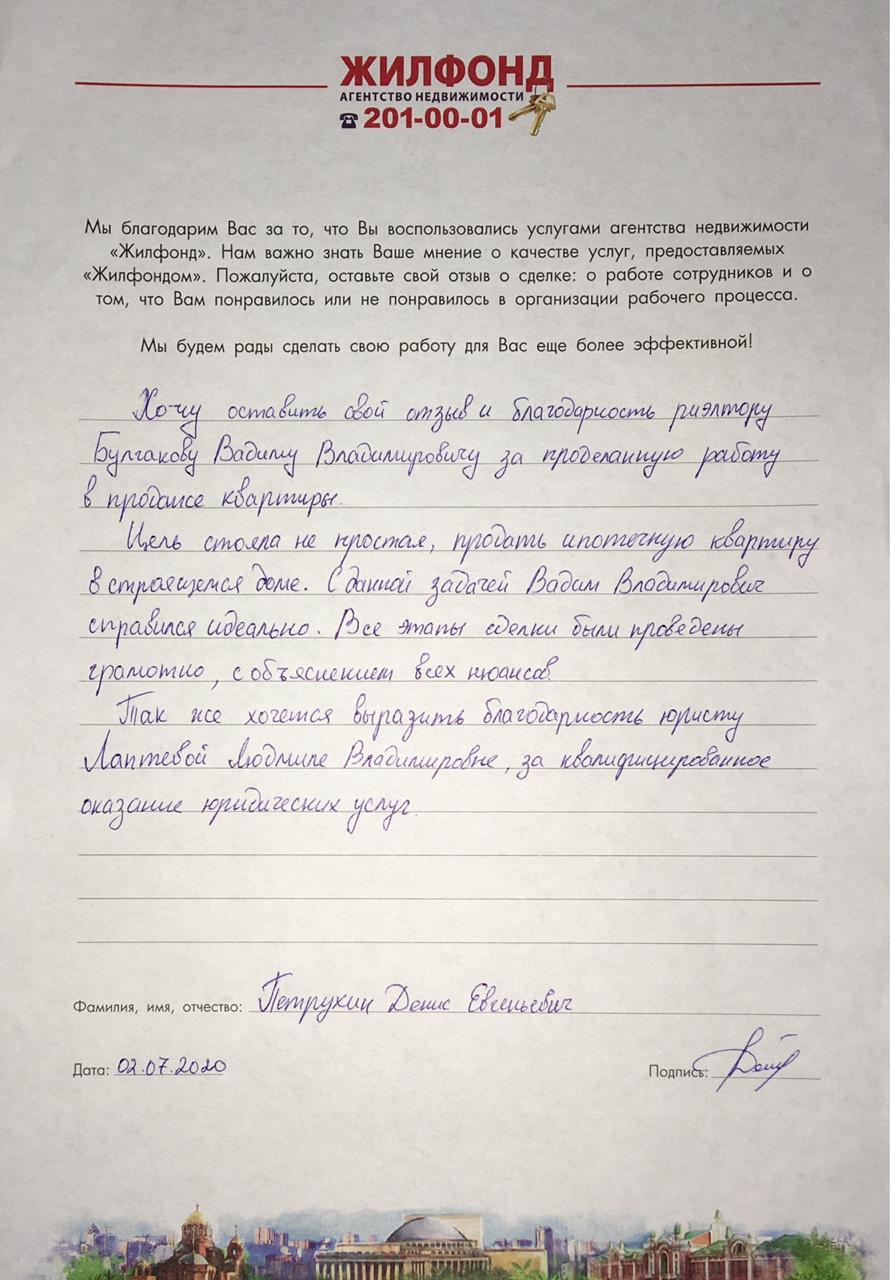 ЖИЛФОНД
АГЕНТСТВО НЕДВИЖИМОСТИ
☎ 201-00-01
Мы благодарим Вас за то, что Вы воспользовались услугами агентства недвижимости
«Жилфонд». Нам важно знать Ваше мнение о качестве услуг, предоставляемых
«Жилфондом». Пожалуйста, оставьте свой отзыв о сделке: о работе сотрудников и о
том, что Вам понравилось или не понравилось в организации рабочего процесса.
Мы будем рады сделать свою работу для Вас еще более эффективной!
Хочу оставить свой отзыв и благодарность риэлтору
Булгакову Вадиму Владимировичу за проделанную работу
в продаже квартиры.
Цель стояла не простая, продать ипотечную квартиру
в строящемся доме. С данной задачей Вадим Владимирович
справился идеально. Все этапы сделки были проведены
грамотно, с объяснением всех нюансов.
Так же хочется выразить благодарность юристу
Лаптевой Людмиле Владимировне, за квалифицированное
оказание юридических услуг.
Фамилия, имя, отчество: Петрухин Денис Евгеньевич
Дата: 02.07.2020 Подпись: